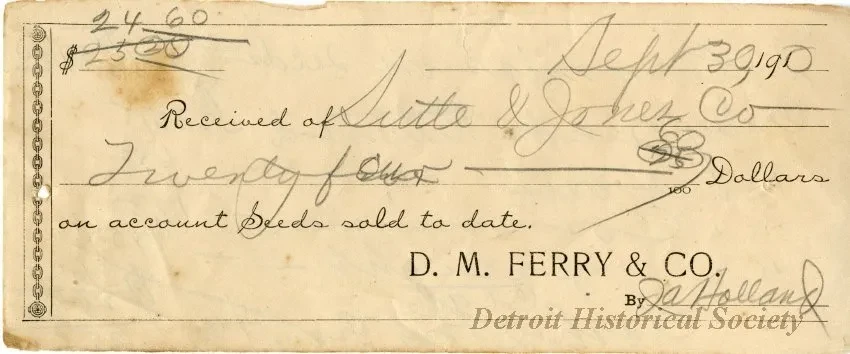 24 60
$ 25 20
Sept 30, 1910
Received of Sutte & Jones Co
Twenty four 60 /100 Dollars
on account Seeds sold to date.
D. M. FERRY & CO.
By J a Holland
Detroit Historical Society